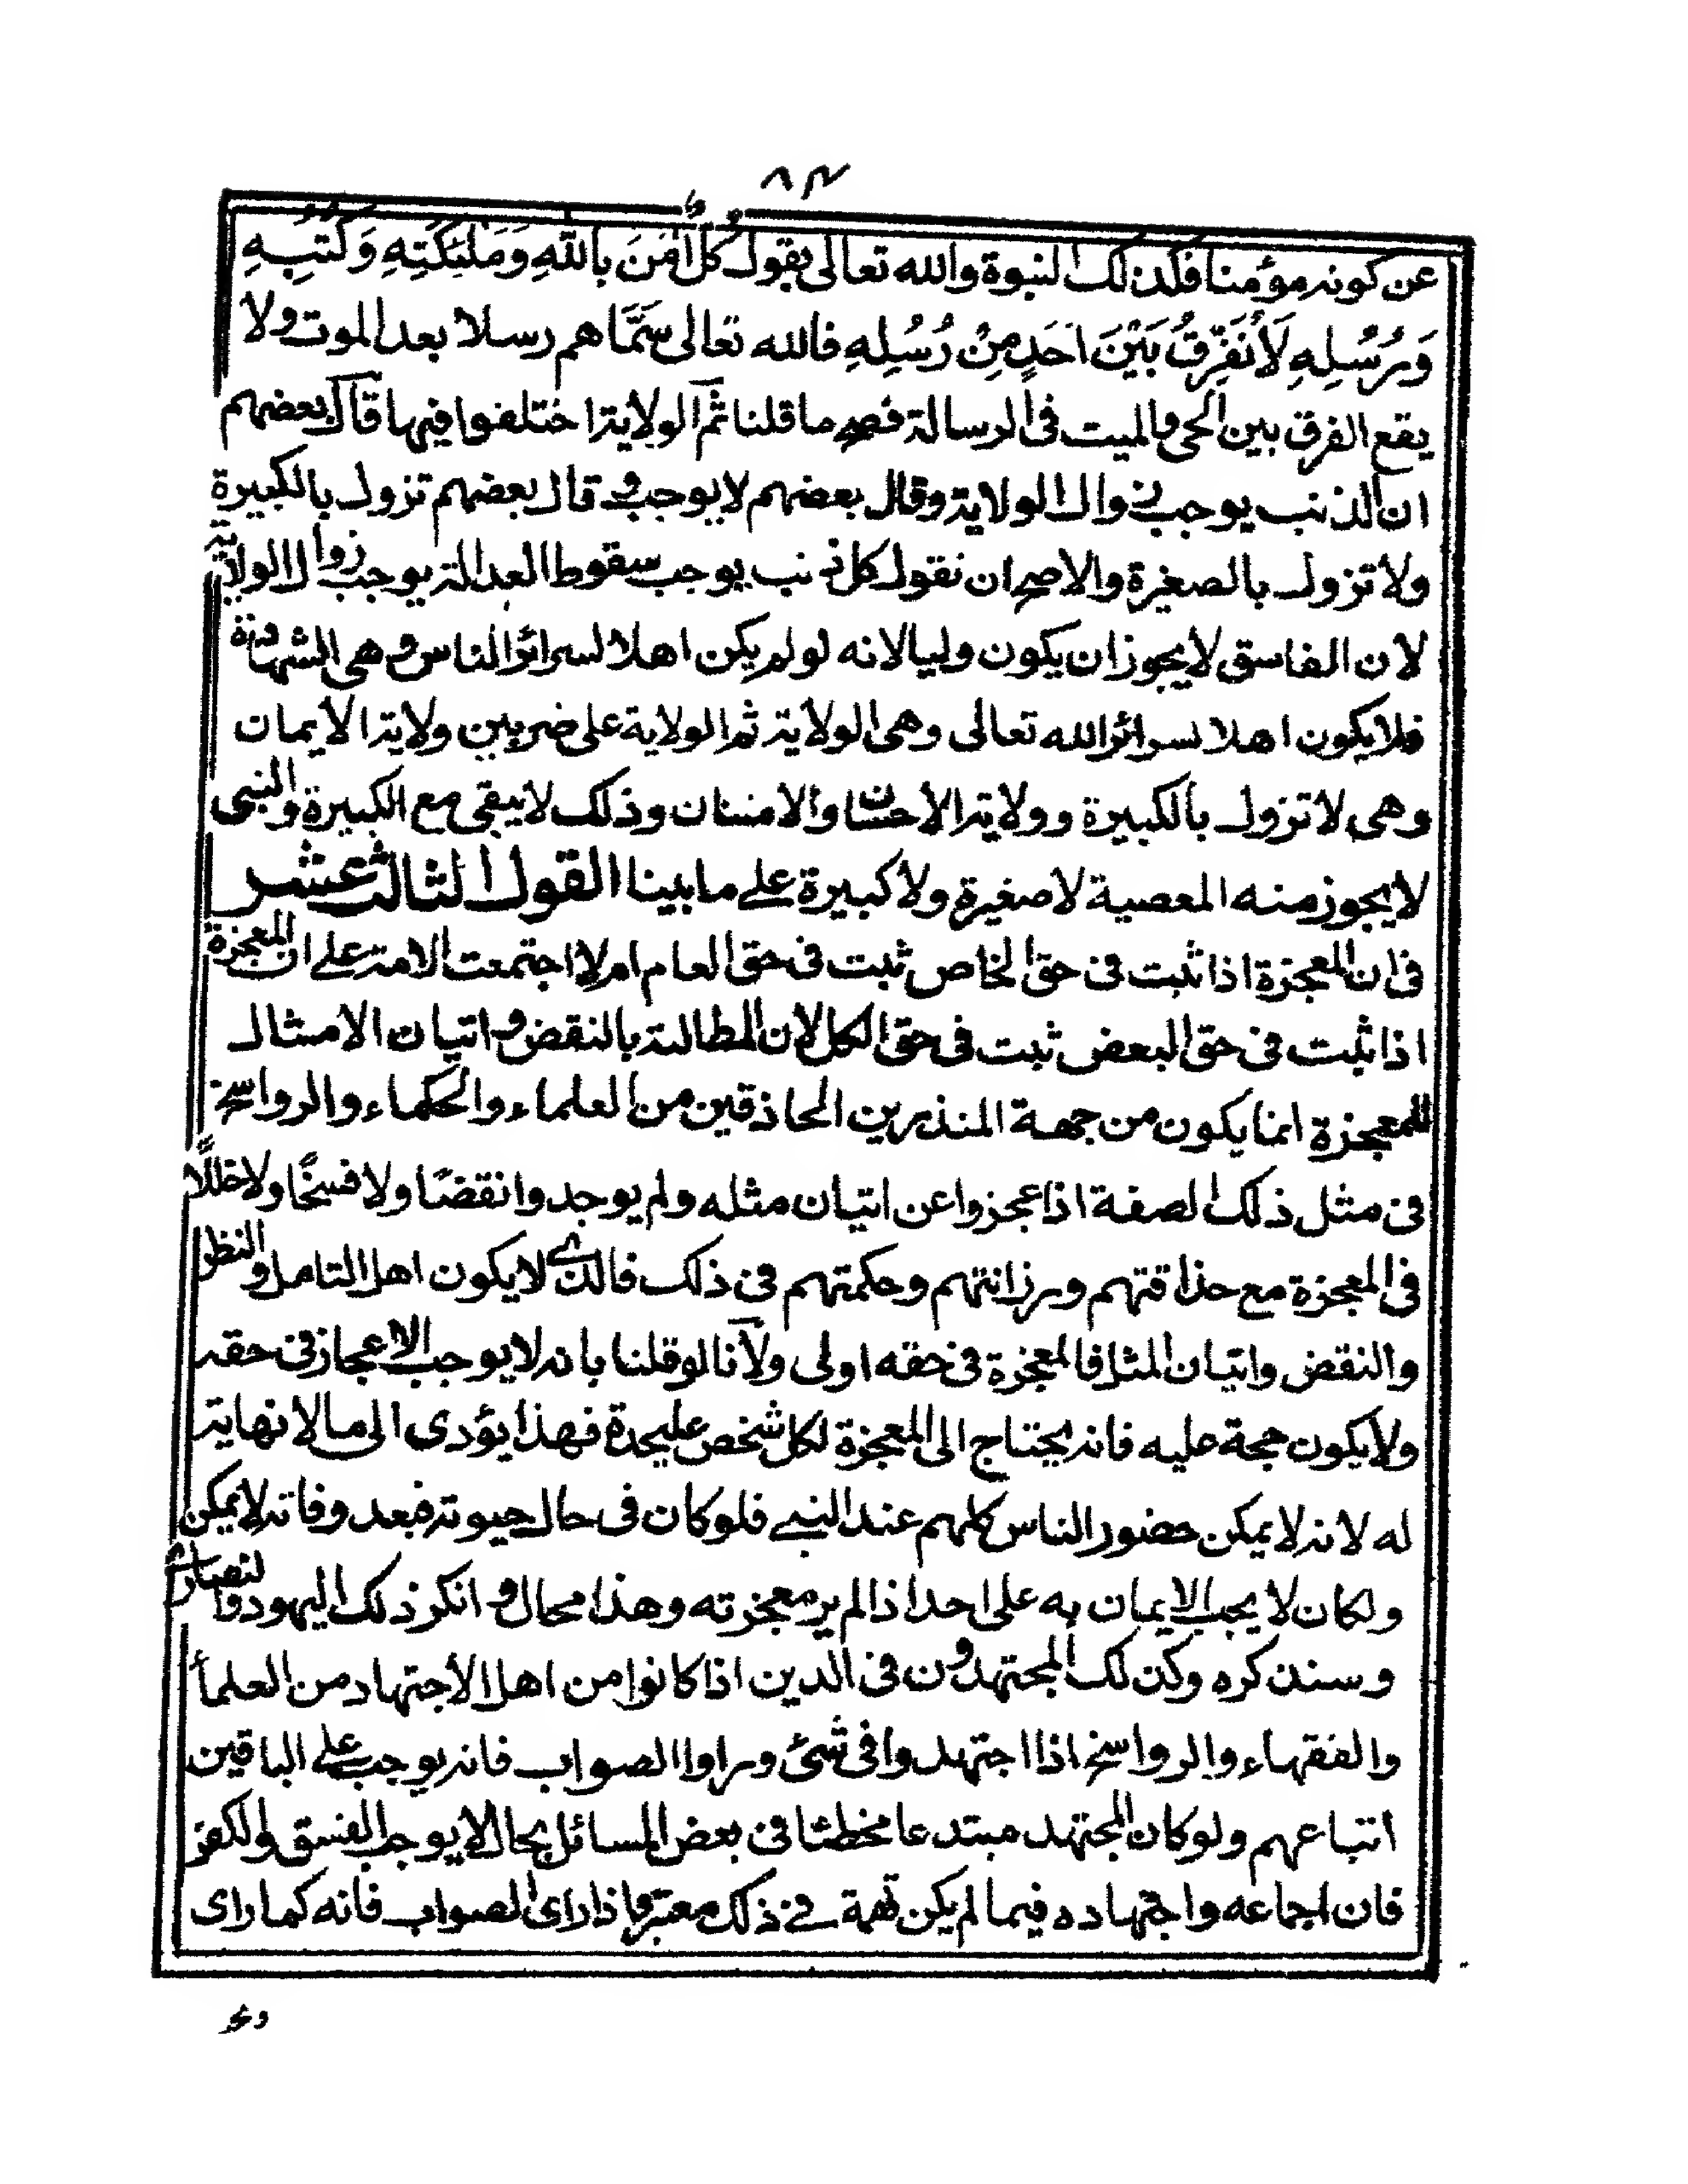 ٨٣
عن كونه مؤمنا فكذلك النبوة والله تعالى يقول كُلٌّ اٰمَنَ بِاللّٰهِ وَمَلٰئِكَتِهٖ وَكُتُبِهٖ
وَرُسُلِهٖ لَا نُفَرِّقُ بَيْنَ اَحَدٍ مِنْ رُسُلِهٖ فالله تعالى سَمَّاهم رسلا بعد الموت ولا
يقع الفرق بين الحى والميت فى الرسالة فصح ما قلنا ثم الولاية اختلفوا فيها قال بعضهم
ان الذنب يوجب زوال الولاية وقال بعضهم لا يوجب و قال بعضهم تزول بالكبيرة
ولا تزول بالصغيرة والاصح ان نقول كل ذنب يوجب سقوط العدالة يوجب زوال الولاية
لان الفاسق لا يجوز ان يكون وليا لانه لو لم يكن اهلا لسرائر الناس وهى الشهادة
فلا يكون اهلا لسرائر الله تعالى وهى الولاية ثم الولاية على ضربين ولاية الايمان
وهى لا تزول بالكبيرة وولاية الاحسان والامتنان وذلك لا يبقى مع الكبيرة والنبى
لا يجوز منه المعصية لا صغيرة ولا كبيرة على ما بينا القول الثالث عشر
فى ان المعجزة اذا ثبت فى حق الخاص ثبت فى حق العام ام لا اجتمعت الامة على ان المعجزة
اذا ثبت فى حق البعض ثبت فى حق الكل لان المطالبة بالنقض و اتيان الامثال
للمعجزة انما يكون من جهة المنذرين الحاذقين من العلماء والحكماء والرواسخ
فى مثل ذلك الصفة اذا عجزوا عن اتيان مثله ولم يوجدوا نقضًا ولا فسخًا ولا خللًا
فى المعجزة مع حذاقتهم ورزانتهم وحكمتهم فى ذلك فالذى لا يكون اهل التامل والنظر
والنقض واتيان المثل فالمعجزة فى حقه اولى ولانا لو قلنا بانه لا يوجب الاعجاز فى حقه
ولا يكون حجة عليه فانه يحتاج الى المعجزة لكل شخص عليحدة فهذا يؤدى الى ما لا نهاية
له لانه لا يمكن حضور الناس كلهم عند النبى فلو كان فى حال حيوته فبعد وفاته لا يمكن
ولكان لا يجب الايمان به على احد اذا لم ير معجزته وهذا محال و انكر ذلك اليهود والنصارى
وسنذكره وكذلك المجتهدون فى الدين اذا كانوا من اهل الاجتهاد من العلماء
والفقهاء والرواسخ اذا اجتهدوا فى شئ وراوا الصواب فانه يوجب على الباقين
اتباعهم ولو كان المجتهد مبتدعا مخطئا فى بعض المسائل بحال لا يوجب الفسق والكفر
فان اجماعه واجتهاده فيما لم يكن تهمة فى ذلك معتبر واذا راى الصواب فانه كما راى